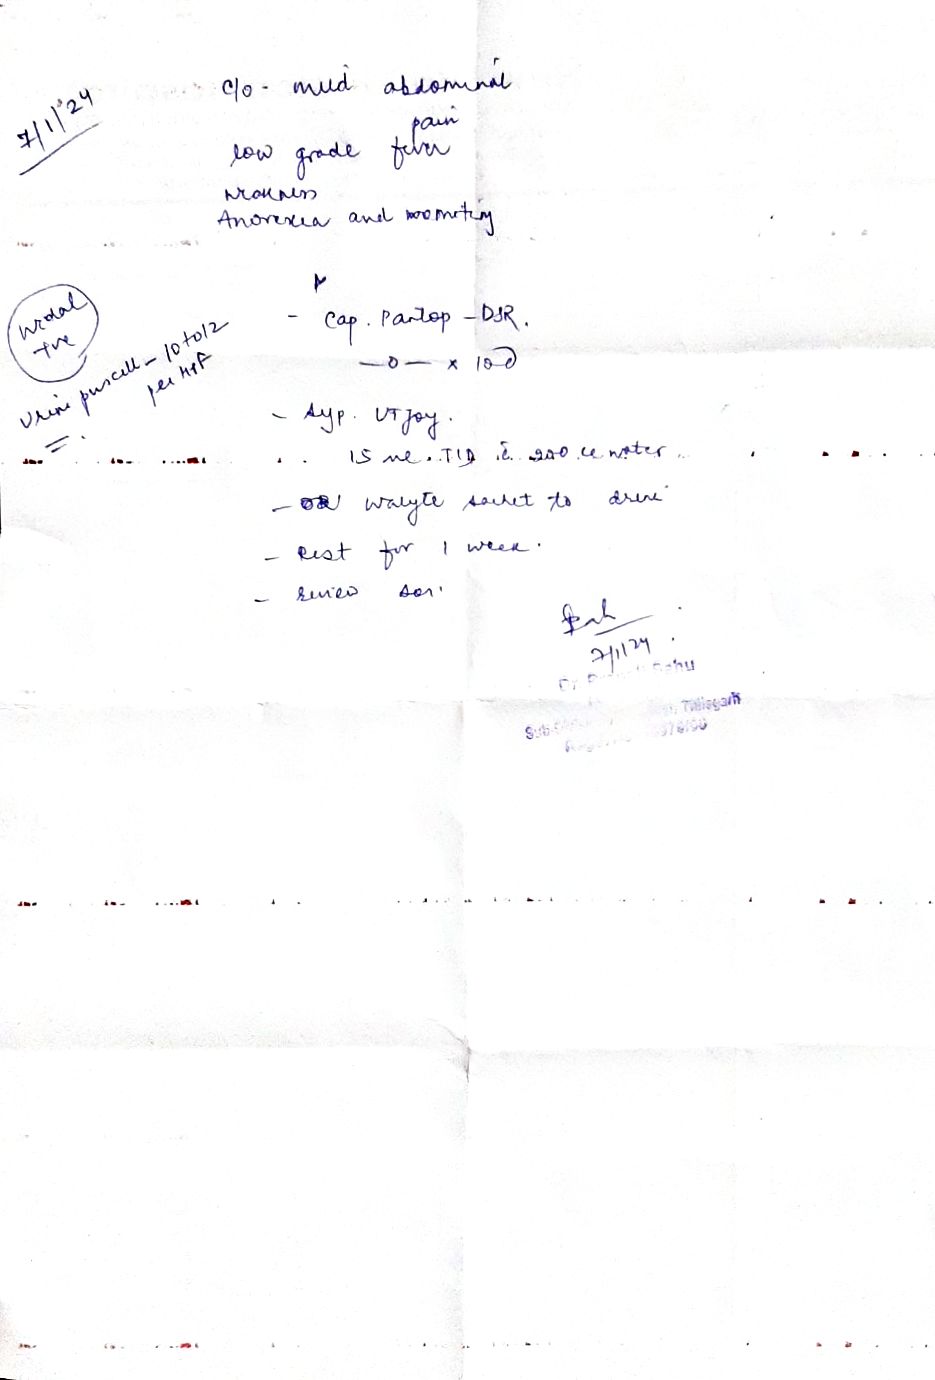 7/1/24
c/o - mild abdominal
pain
low grade fever
weakness
Anorexia and vomiting
widal
+ve
Urine puscell - 10 to 12
per HPF
- Cap. Pantop - DSR.
—0— x 10d
- Syp. UTjoy.
15 ml. TID c 200 cc water
- walyte sachet to drink
- Rest for 1 week.
- review sos.
7/1/24
Dr Sahu